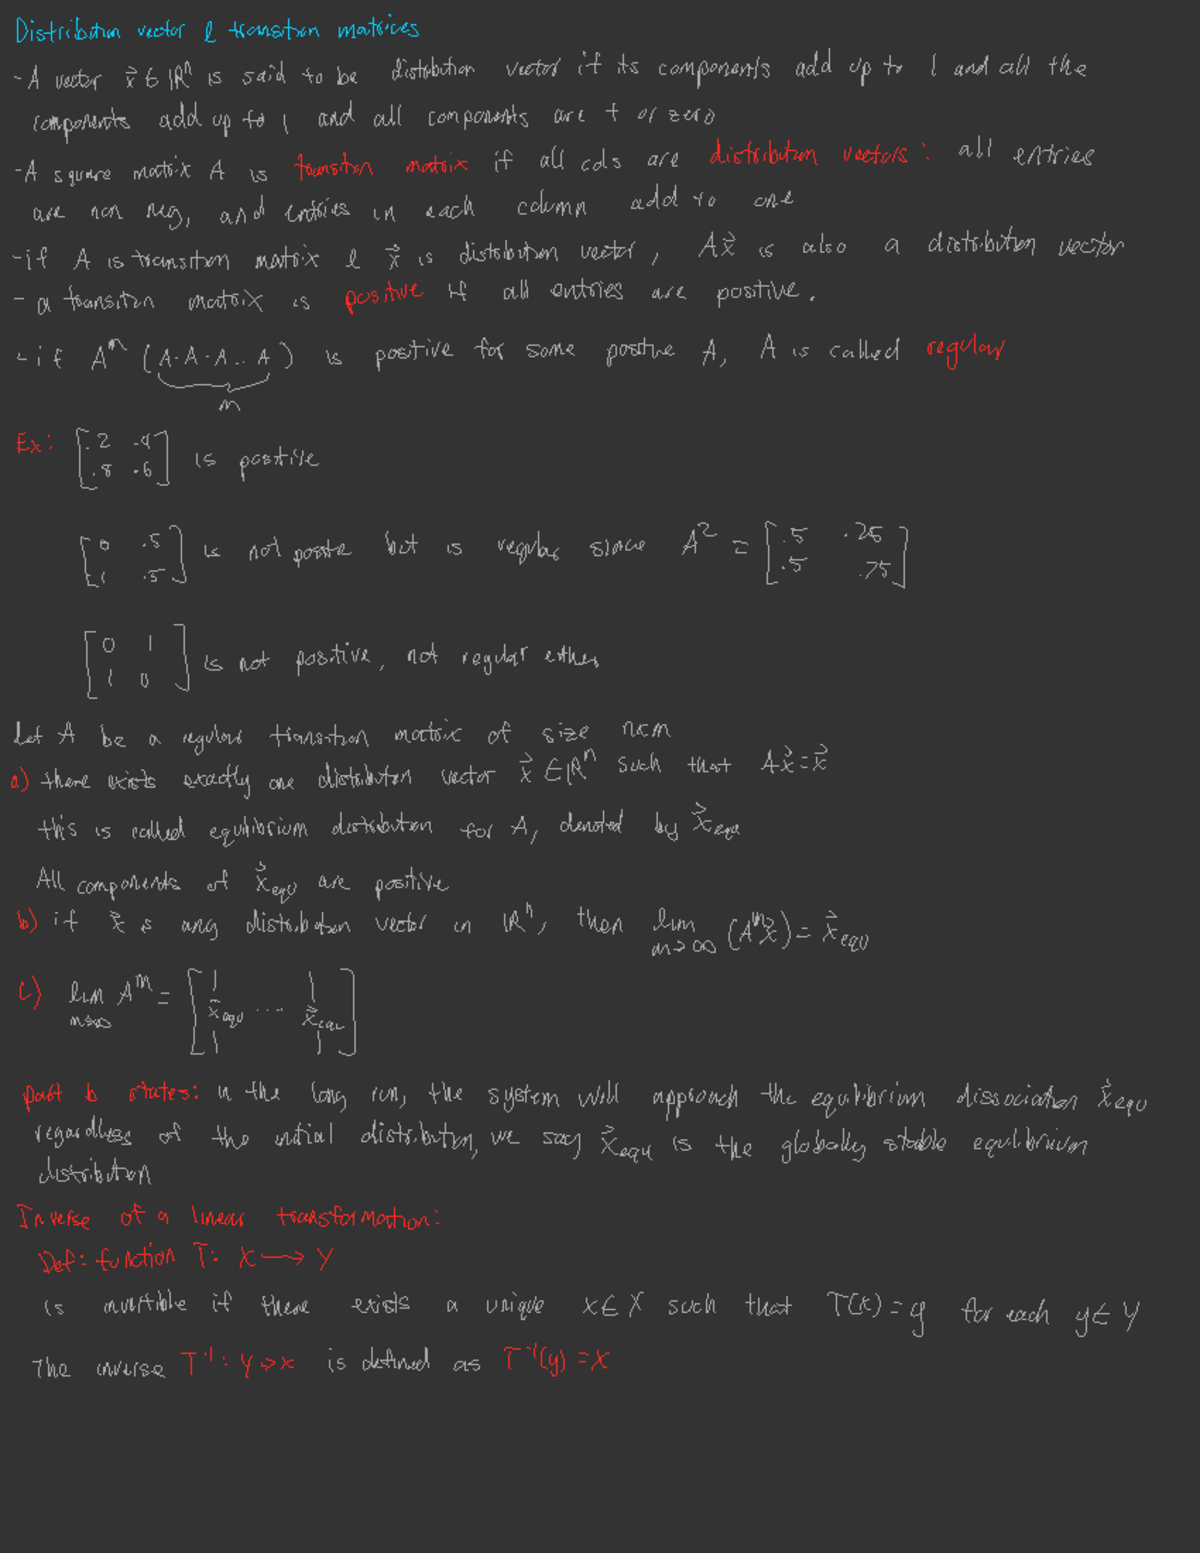 Distribution vector & transition matrices
- A vector x⃗ ∈ ℝⁿ is said to be distribution vector if its components add up to 1 and all the
components add up to 1 and all components are + or zero
- A square matrix A is transition matrix if all cols are distribution vectors: all entries
are non neg, and entries in each column add to one
- if A is transition matrix & x⃗ is distribution vector, Ax⃗ is also a distribution vector
- a transition matrix is positive if all entries are positive.
- if Aᵐ (A·A·A...A) is positive for some positive A, A is called regular
m
Ex: [.2 .4; .8 .6] is positive
[0 .5; 1 .5] is not positive but is regular since A² = [.5 .25; .5 .75]
[0 1; 1 0] is not positive, not regular either
Let A be a regular transition matrix of size nxm
a) there exists exactly one distribution vector x⃗ ∈ ℝⁿ such that Ax⃗ = x⃗
this is called equilibrium distribution for A, denoted by x⃗equ
All components of x⃗equ are positive
b) if x⃗ is any distribution vector in ℝⁿ, then lim m→∞ (Aᵐx⃗) = x⃗equ
c) lim m→∞ Aᵐ = [x⃗equ ... x⃗equ]
part b states: in the long run, the system will approach the equilibrium dissociation x⃗equ
regardless of the initial distribution, we say x⃗equ is the globally stable equilibrium
distribution
Inverse of a linear transformation:
Def: function T: X → Y
is invertible if there exists a unique x ∈ X such that T(x) = y for each y ∈ Y
The inverse T⁻¹: Y → X is defined as T⁻¹(y) = x